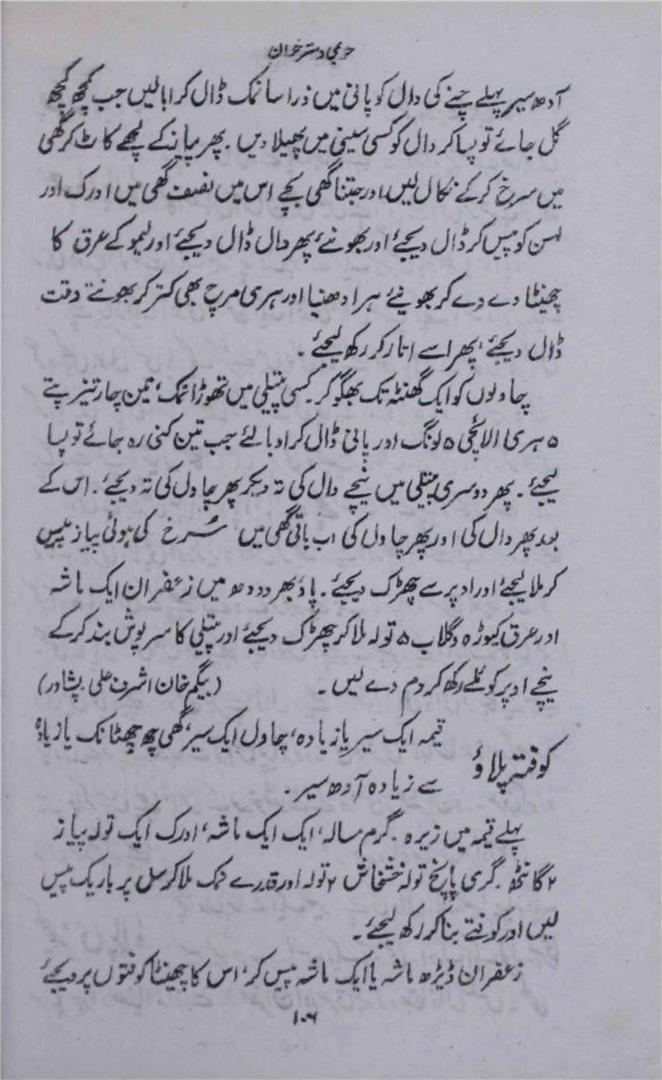 حربمی دسترخوان
آدھ سیر پہلے چنے کی دال کو پانی میں ذرا سا نمک ڈال کر ابالیں جب کچھ کچھ
گل جائے تو پسا کر دال کو کسی سینی میں پھیلا دیں۔ پھر پیاز کے لچھے کاٹ کر گھی
میں سرخ کر کے نکال لیں، اور جتنا گھی بچے اس میں نصف گھی میں ادرک اور
لہسن کو پیس کر ڈال دیجئے اور بھونئے، پھر دال ڈال دیجئے اور لیمو کے عرق کا
چھینٹا دے دے کر بھونئیے ہرا دھنیا اور ہری مرچ بھی کتر کر بھونتے وقت
ڈال دیجئے، پھر اسے اتار کر رکھ لیجئے۔
چاولوں کو ایک گھنٹہ تک بھگو کر۔ کسی پتیلی میں تھوڑا نمک، تین چار تیز پتے
۵ ہری الائچی ۵ لونگ اور پانی ڈال کر ادبالئے جب تین کنی رہ جائے تو پسا
لیجئے۔ پھر دوسری پتیلی میں نیچے دال کی تہ دیکر پھر چاول کی تہ دیجئے۔ اس کے
بعد پھر دال کی اور پھر چاول کی اب باقی گھی میں سُرخ کی ہوئی پیاز پیس
کر ملا لیجئے اور اوپر سے چھڑک دیجئے۔ پاؤ بھر دودھ میں زعفران ایک ماشہ
اور عرق کیوڑہ و گلاب ۵ تولہ ملا کر چھڑک دیجئے اور پتیلی کا سرپوش بند کر کے
نیچے اوپر کوئلے رکھ کر دم دے لیں۔ (بیگم خان اشرف علی۔ پشاور)
کوفتہ پلاؤ قیمہ ایک سیر یا زیادہ، چاول ایک سیر، گھی چھ چھٹانک یا زیادہ
سے زیادہ آدھ سیر۔
پہلے قیمہ میں زیرہ۔ گرم مسالہ، ایک ایک ماشہ، ادرک ایک تولہ پیاز
۲ گانٹھ۔ گری پانچ تولہ خشخاش ۲ تولہ اور قدرے نمک ملا کر سل پر باریک پیس
لیں اور کوفتے بنا کر رکھ لیجئے۔
زعفران ڈیڑھ ماشہ یا ایک ماشہ پیس کر، اس کا چھینٹا کوفتوں پر دیجئے
۱۰۶